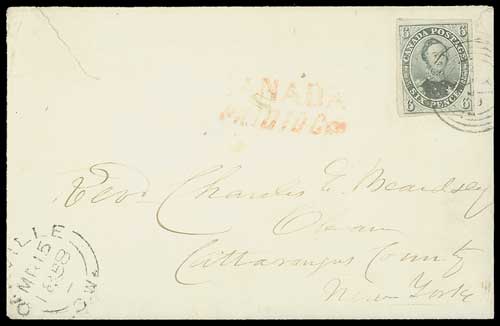 CANADA POSTAGE
6 6
6 SIX PENCE 6
CANADA
PAID 10 Cts
Revd Charles E. Beardsley
Olean
Cattaraugus County
New York
MR 15
1858
C.W.